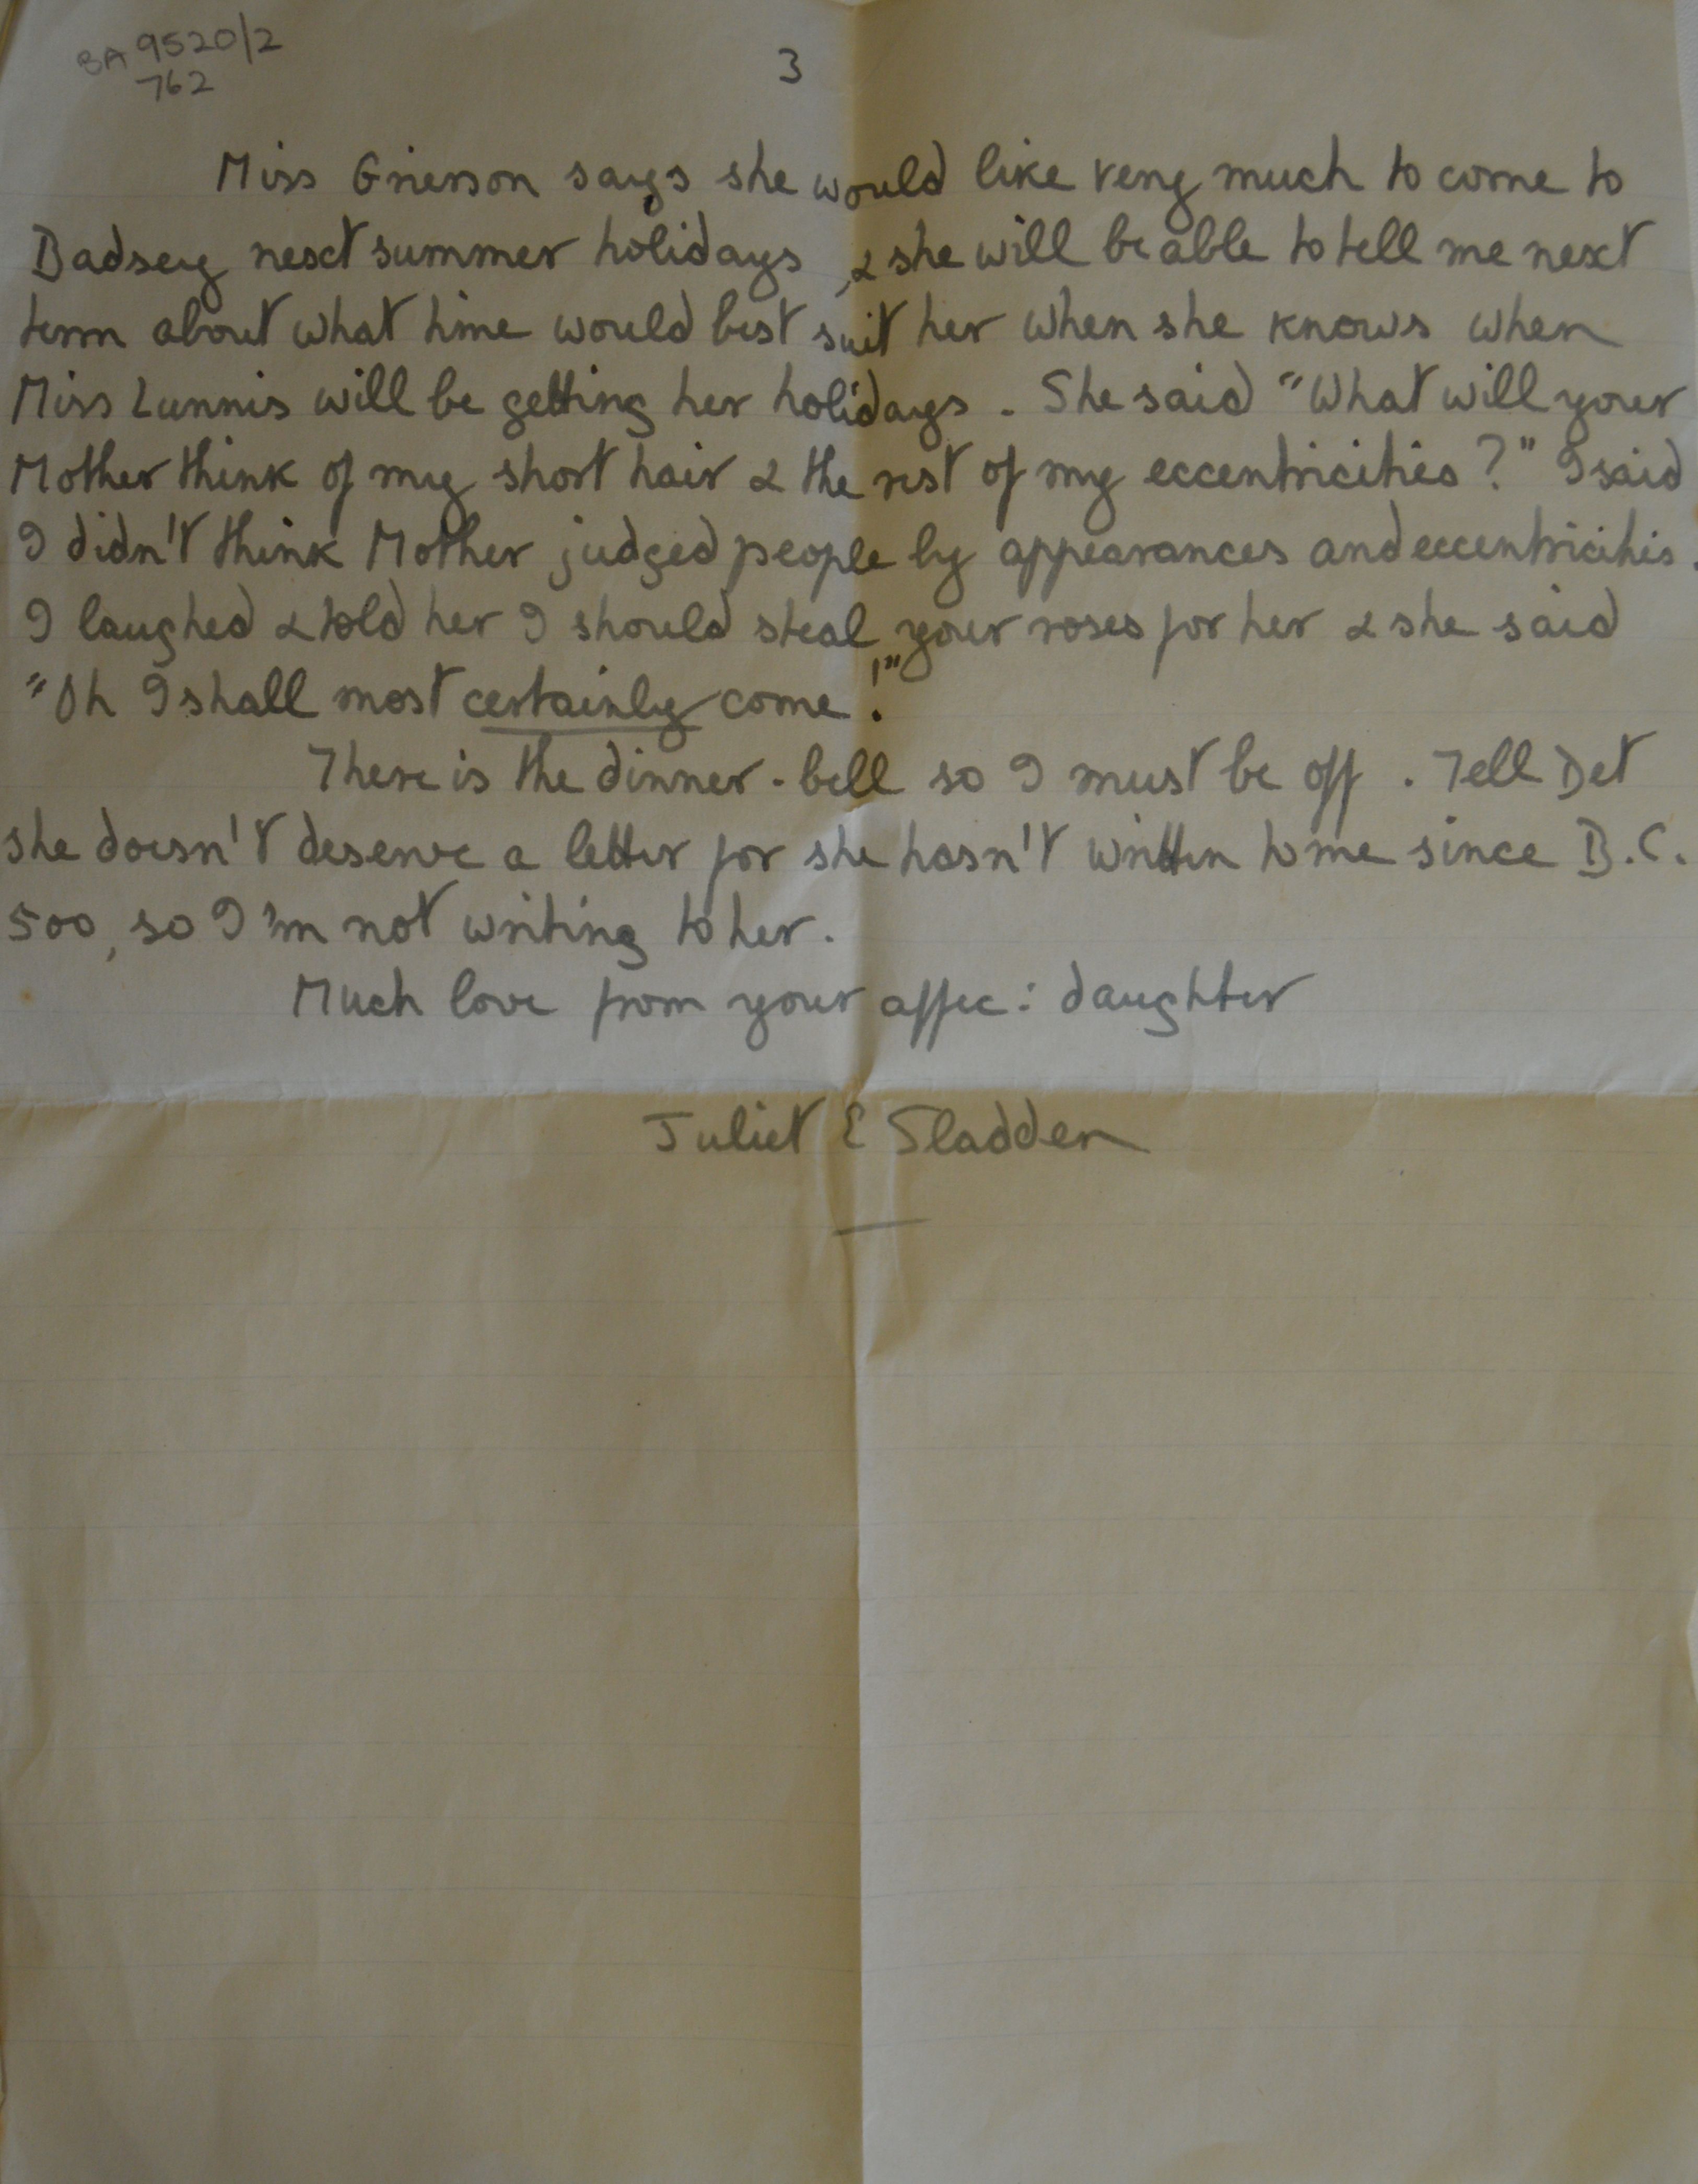 BA 9520/2
762
3
Miss Grierson says she would like very much to come to
Badsey next summer holidays, & she will be able to tell me next
term about what time would best suit her when she knows when
Miss Lunnis will be getting her holidays. She said "What will your
Mother think of my short hair & the rest of my eccentricities?" I said
I didn't think Mother judged people by appearances and eccentricities.
I laughed & told her I should steal your roses for her & she said
"Oh I shall most certainly come!"
There is the dinner-bell so I must be off. Tell Det
she doesn't deserve a letter for she hasn't written to me since B.C.
500, so I'm not writing to her.
Much love from your affec: daughter
Juliet E Sladden